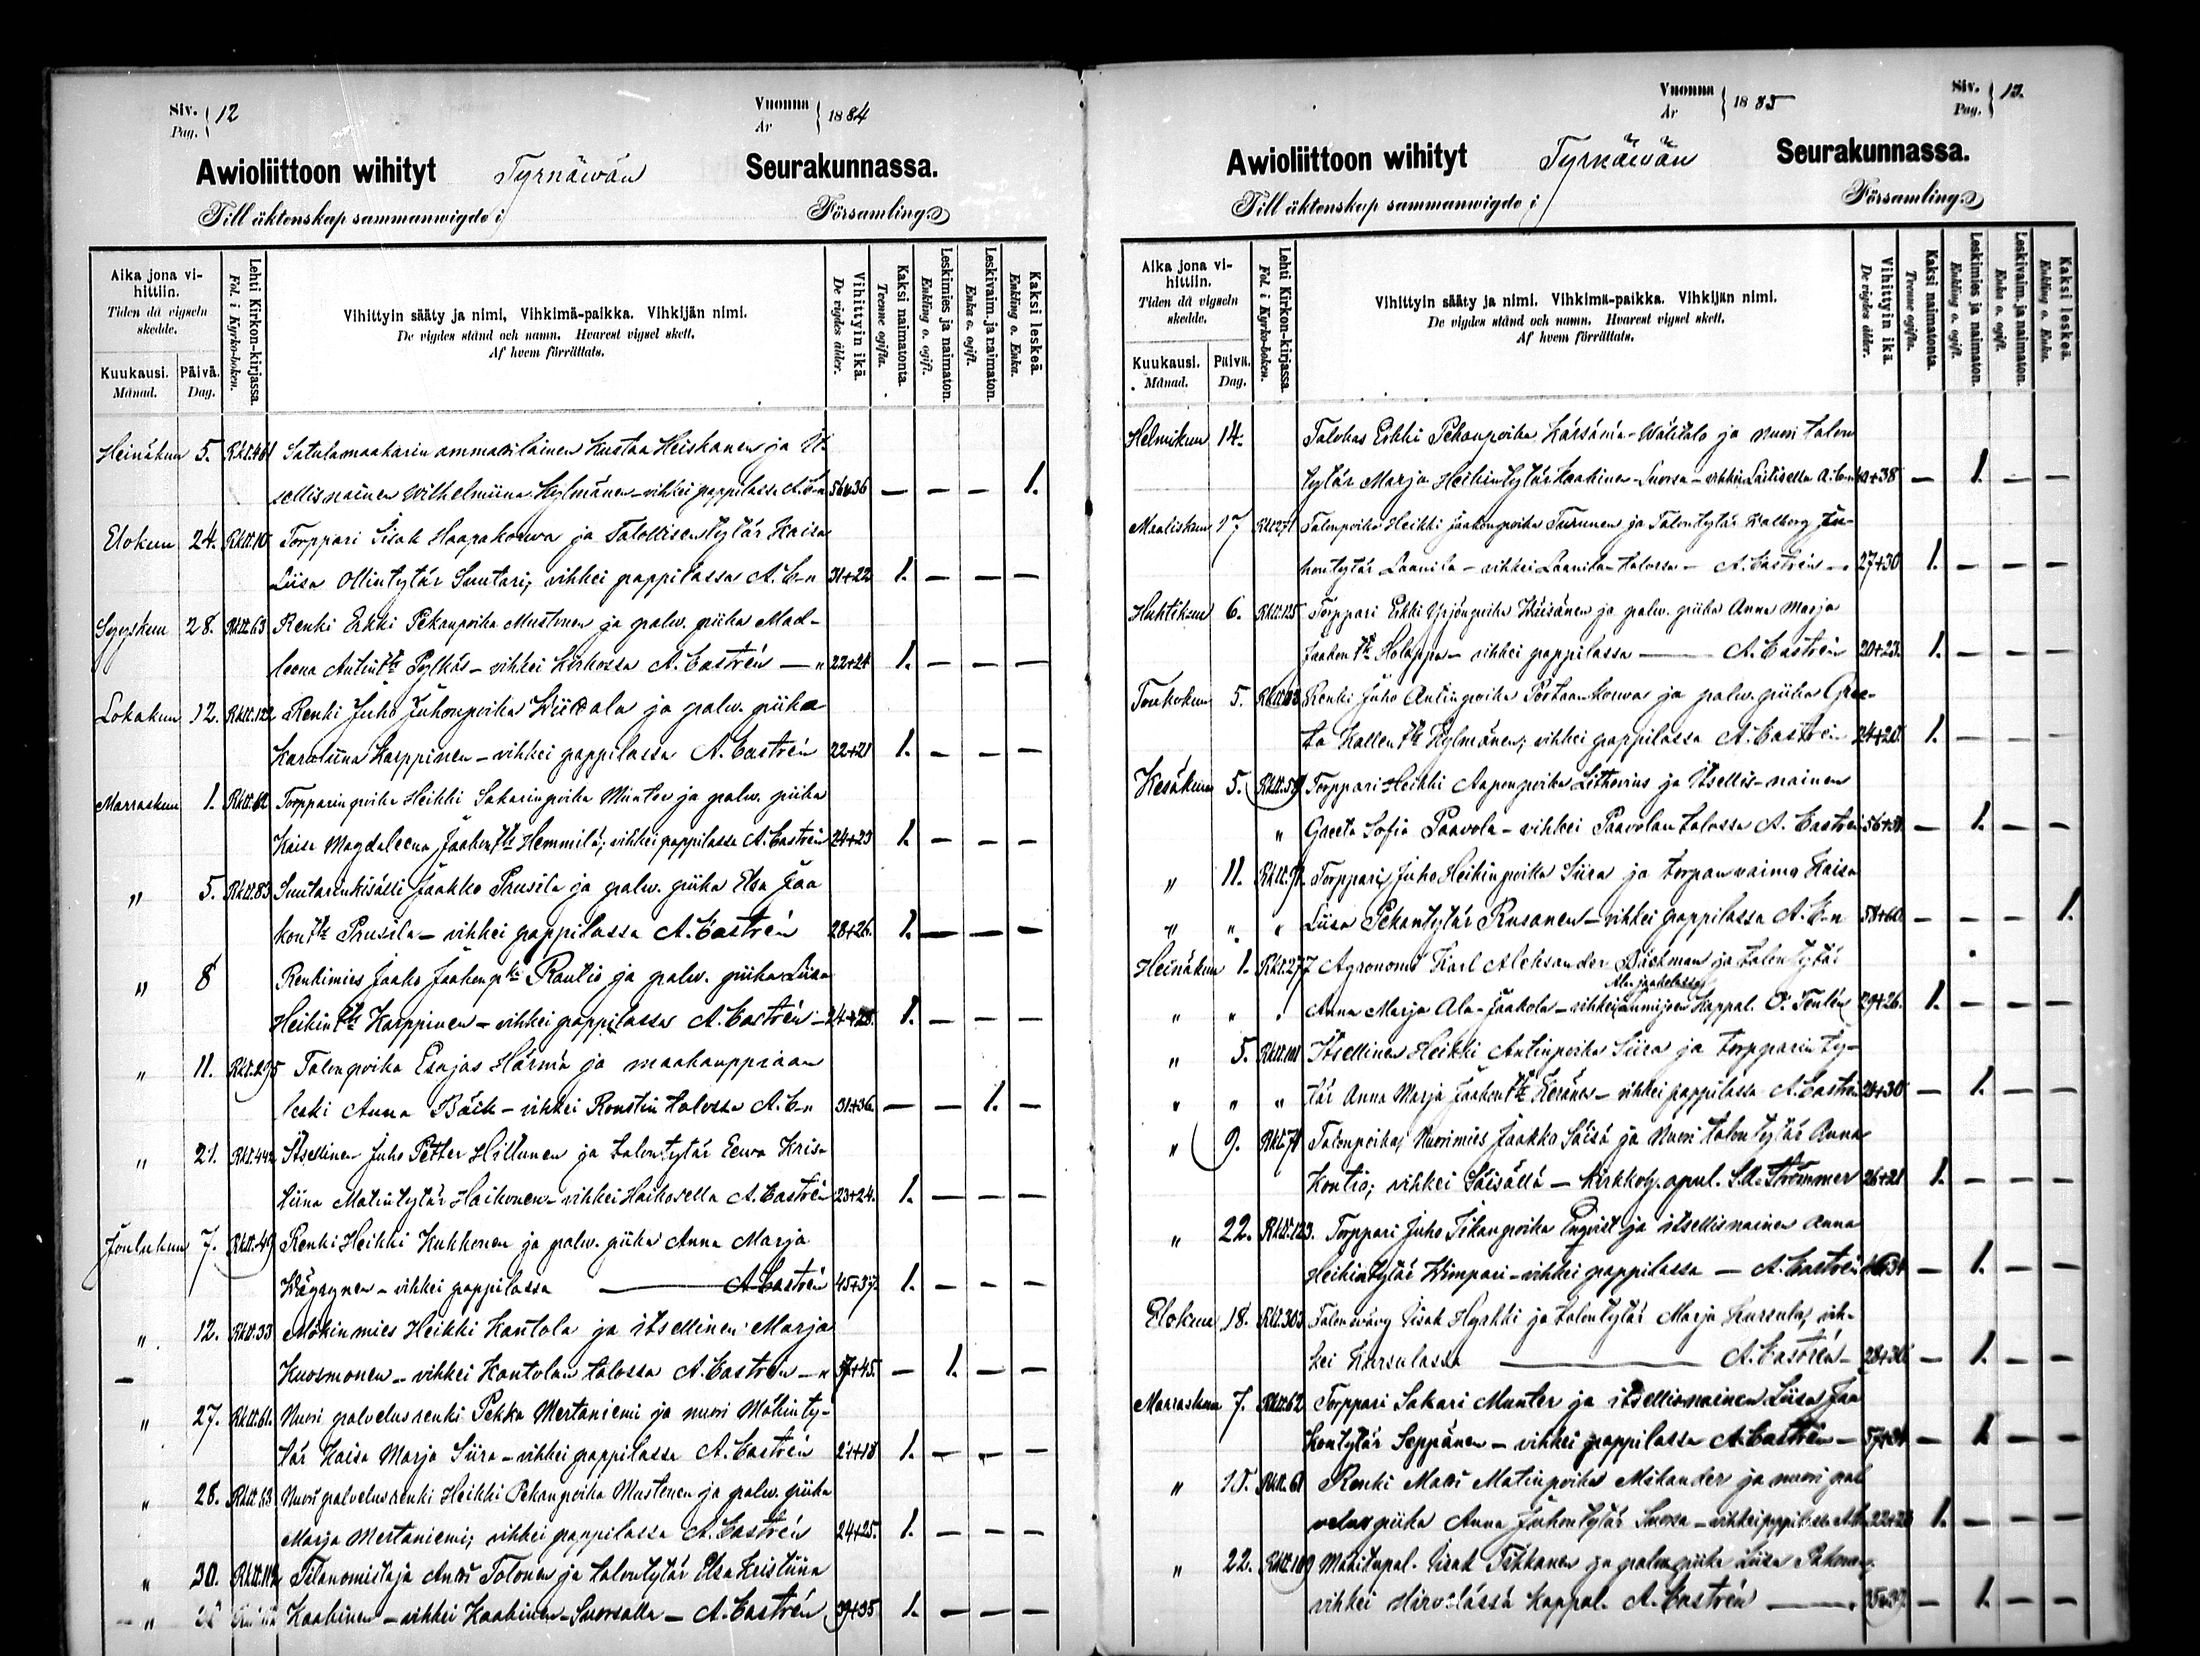 Siv. Pag. 12
Vuonna År 1884
Awioliittoon wihityt Tyrnäwän Seurakunnassa.
Till äktenskap sammanwigde i Församling
Aika jona vihittiin.
Tiden då vigseln skedde.
Kuukausi. Månad.
Päivä. Dag.
Lehti Kirkon-kirjassa.
Fol. i Kyrko-boken.
Vihittyin sääty ja nimi, Vihkimä-paikka. Vihkijän nimi.
De vigdes stånd och namn. Hvarest vigsel skett.
Af hvem förrättats.
Vihittyin ikä. De vigdes ålder.
Kaksi naimatonta. Tvenne ogifta.
Leskimies ja naimaton. Enkling o. ogift.
Leskivaim. ja naimaton. Enka o. ogift.
Kaksi leskeä. Enkling o. Enka.
Heinäkuu 5. Rkt.461 Satulamaakarin ammattilainen Kustaa Heiskanen ja It-
sellisnainen Wilhelmiina Hylmänen - vihkei pappilassa A. C-n 56+36 — — — 1.
Elokuu 24. Torppari Iisak Haapakoswa ja Talollisentytär Kaisa
Liisa Ollintytär Suutari; vihkei pappilassa A. C-n 31+22 1. — — —
Syyskuu 28. Rktt.63 Renki Erkki Pekanpoika Mustonen ja palw. piika Mad-
leena Antintr Pylkäs - vihkei kirkossa A. Castrén — " 22+24 1. — — —
Lokakuu 12. Rktt.122 Renki Juho Juhonpoika Wiitala ja palw. piika
Karoliina Karppinen - vihkei pappilassa A. Castrén 22+21 1. — — —
Marraskuu 1. Rktt.62 Torpparinpoika Heikki Sakarinpoika Munter ja palw. piika
Kaisa Magdaleena Jaakontr Hemmilä; vihkei pappilassa A. Castrén 24+23 1. — — —
" 5. Rktt.83 Suutarinkisälli Jaakko Prusila ja palw. piika Elsa Jaa
kontr Prusila - vihkei pappilassa A. Castrén 28+26. 1. — — —
" 8 Renkimies Jaako Jaakonp Rautio ja palw. piika Liisa
Heikintr Karppinen - vihkei pappilassa A. Castrén - 1. — — —
" 11. Rkt.295 Talonpoika Esajas Härmä ja maakauppiaan
leski Anna Bäck - vihkei Ronstin talossa A. C-n 31+36. — — 1. —
" 21. Rkt.442 Itsellinen Juho Petter Hiltunen ja talontytär Eewa Kris-
tiina Matintytär Haikonen - vihkei Haikosella A. Castrén 23+24. 1. — — —
Joulukuu 7. Rktt.49 Renki Heikki Kukkonen ja palw. piika Anna Marja
Wäyrynen - vihkei pappilassa — A. Castrén 45+37. 1. — — —
" 12. Rktt.33 Mökinmies Heikki Kantola ja itsellinen Marja
Kuosmonen - vihkei Kantolan talossa A. Castrén — " 57+45. — 1. — —
" 27. Rktt.61. Nuori palvelusrenki Pekka Mertaniemi ja nuori Mökinty-
tär Kaisa Marja Siira - vihkei pappilassa A. Castrén 21+18 1. — — —
" 28. Rktt.63 Nuori palvelusrenki Heikki Pekanpoika Mustonen ja palw. piika
Marja Mertaniemi; vihkei pappilassa A. Castrén 24+25. 1. — — —
" 30. Rktt.112 Tilanomistaja Antti Tolonen ja talontytär Elsa Kristiina
Kaakinen - vihkei Kaakinen-Suorsalla - A. Castrén 39+35 1. — — —
Vuonna År 1885
Siv. Pag. 13.
Awioliittoon wihityt Tyrnäwän Seurakunnassa.
Till äktenskap sammanwigde i Församling
Aika jona vihittiin.
Tiden då vigseln skedde.
Kuukausi. Månad.
Päivä. Dag.
Lehti Kirkon-kirjassa.
Fol. i Kyrko-boken.
Vihittyin sääty ja nimi. Vihkimä-paikka. Vihkijän nimi.
De vigdes stånd och namn. Hvarest vigsel skett.
Af hvem förrättats.
Vihittyin ikä. De vigdes ålder.
Kaksi naimatonta. Tvenne ogifta.
Leskimies ja naimaton. Enkling o. ogift.
Leskivaim. ja naimaton. Enka o. ogift.
Kaksi leskeä. Enkling o. Enka.
Helmikuu 14. Talokas Erkki Pekanpoika Kärsämä-Wälitalo ja nuori talon
tytär Marja Heikintytär Kaakinen-Suorsa - vihkei A. C-n — 1. — —
Maaliskuu 17 Rkt.271 Talonpoika Heikki Jaakonpoika Turunen ja Talontytär Walborg Ju-
hontytär Laanila - vihkei Laanila-talossa - A. Castrén - 27+30 1. — — —
Huhtikuu 6. Rktt.125 Torppari Erkki Yrjönpoika Wäisänen ja palw. piika Anna Marja
Jaakontr Holappa - vihkei pappilassa — A. Castrén 20+23. 1. — — —
Toukokuu 5. Renki Juho Antinpoika Portaankorwa ja palw. piika Gree-
ta Kallentr Hylmänen; vihkei pappilassa A. Castrén 1. — — —
Kesäkuu 5. Rktt.59 Torppari Heikki Aaponpoika Lithovius ja Itsellis-nainen
" Greeta Sofia Paavola - vihkei Paavolan talossa A. Castrén — 1. — —
" 11. Rktt.91. Torppari Juho Heikinpoika Siira ja torpanvaimo Kaisa
" " " Liisa Pekantytär Rusanen - vihkei pappilassa A. C-n 58+60 — — — 1.
Heinäkuu 1. Rkt.277 Agronomi Karl Aleksander Bäckman ja talontytär
Ala-jaakolassa
" " " Anna Marja Ala-Jaakola - vihkei Kappal. O. Tenlén 29+26. 1. — — —
" 5. Rktt.101 Itsellinen Heikki Antinpoika Siira ja torpparinty-
" " " tär Anna Marja Jaakontr Keränen - vihkei pappilassa A. Castrén — 1. — —
" 9. Rkt.71 Talonpoika, Nuorimies Jaakko Säisä ja Nuori talontytär Anna
Kontio; vihkei Säisällä - kirkkoh. apul. S. A. Strömmer 26+21 1. — — —
" 22. Rktt.123. Torppari Juho Pekanpoika Enqvist ja itsellisnainen Anna
Heikintytär Wimpari - vihkei pappilassa - A. Castrén — 1. — —
Elokuu 18. Rkt.303 Talonvävy Iisak Hyrkki ja talontytär Marja Kursula, vih-
kei Kursulassa — A. Castrén - — 1. — —
Marraskuu 7. Rktt.62 Torppari Sakari Munter ja itsellisnainen Liisa Jaa
kontytär Seppänen - vihkei pappilassa A. Castrén - 57+34 — 1. — —
" 15. Rktt.61 Renki Matti Matinpoika Milander ja nuori pal
veluspiika Anna Juhontytär Suorsa - vihkei pappilassa 1. — — —
" 22. Rktt.109 Mäkitupal. Iisak Pikkanen ja palw. piika Liisa
vihkei Kappal. A. Castrén — — 1. — —